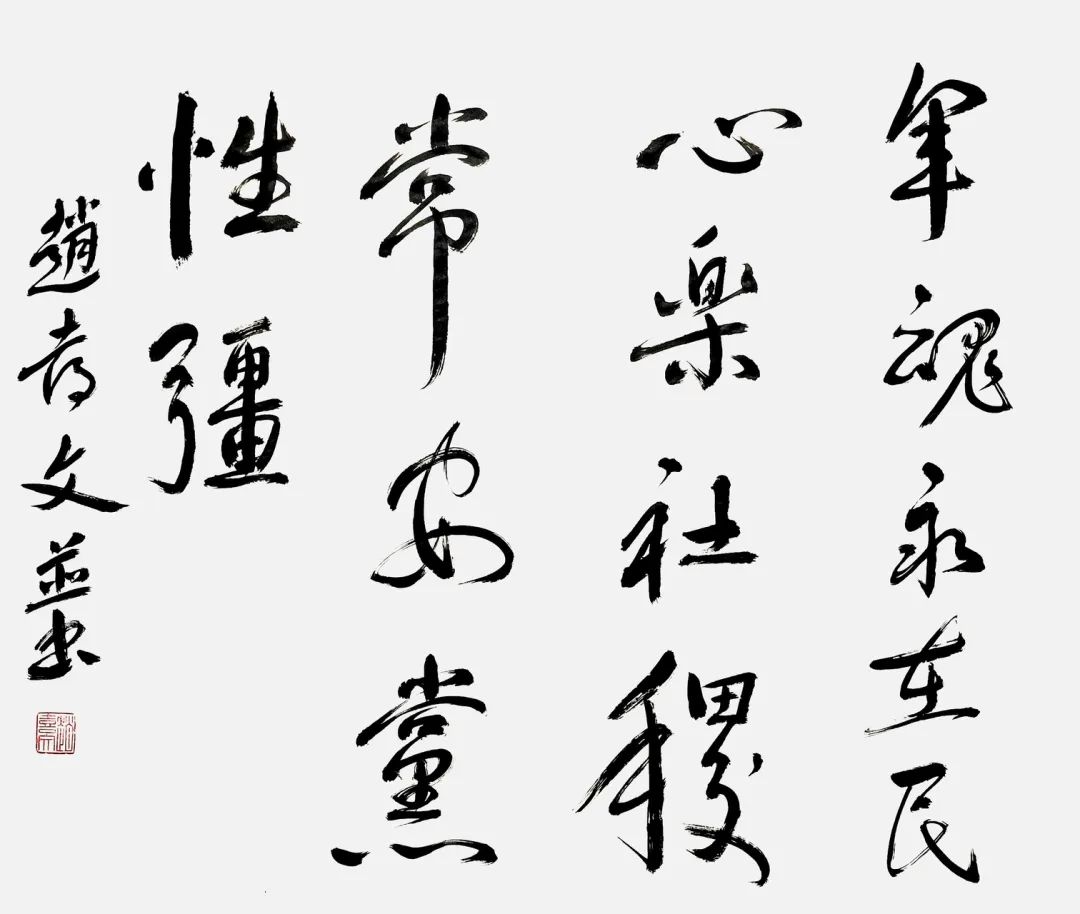 军魂永在民
心樂社稷
常安黨
性彊
趙文並书